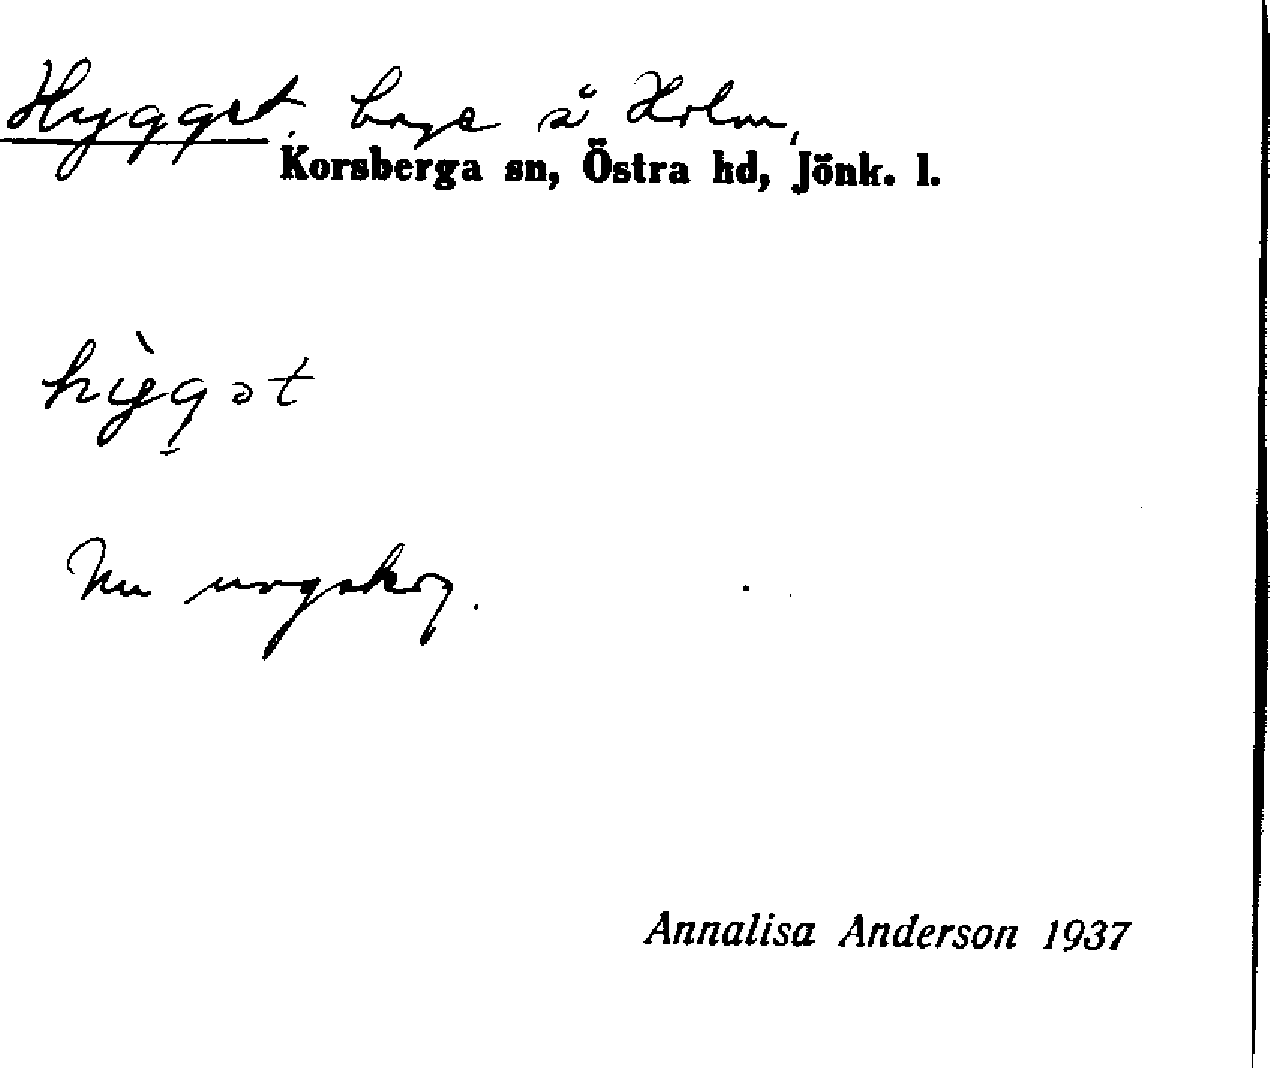 Hygget, hage å Holm,
Korsberga sn, Östra hd, Jönk. l.
hỳgət
Nu ungskog.
Annalisa Anderson 1937